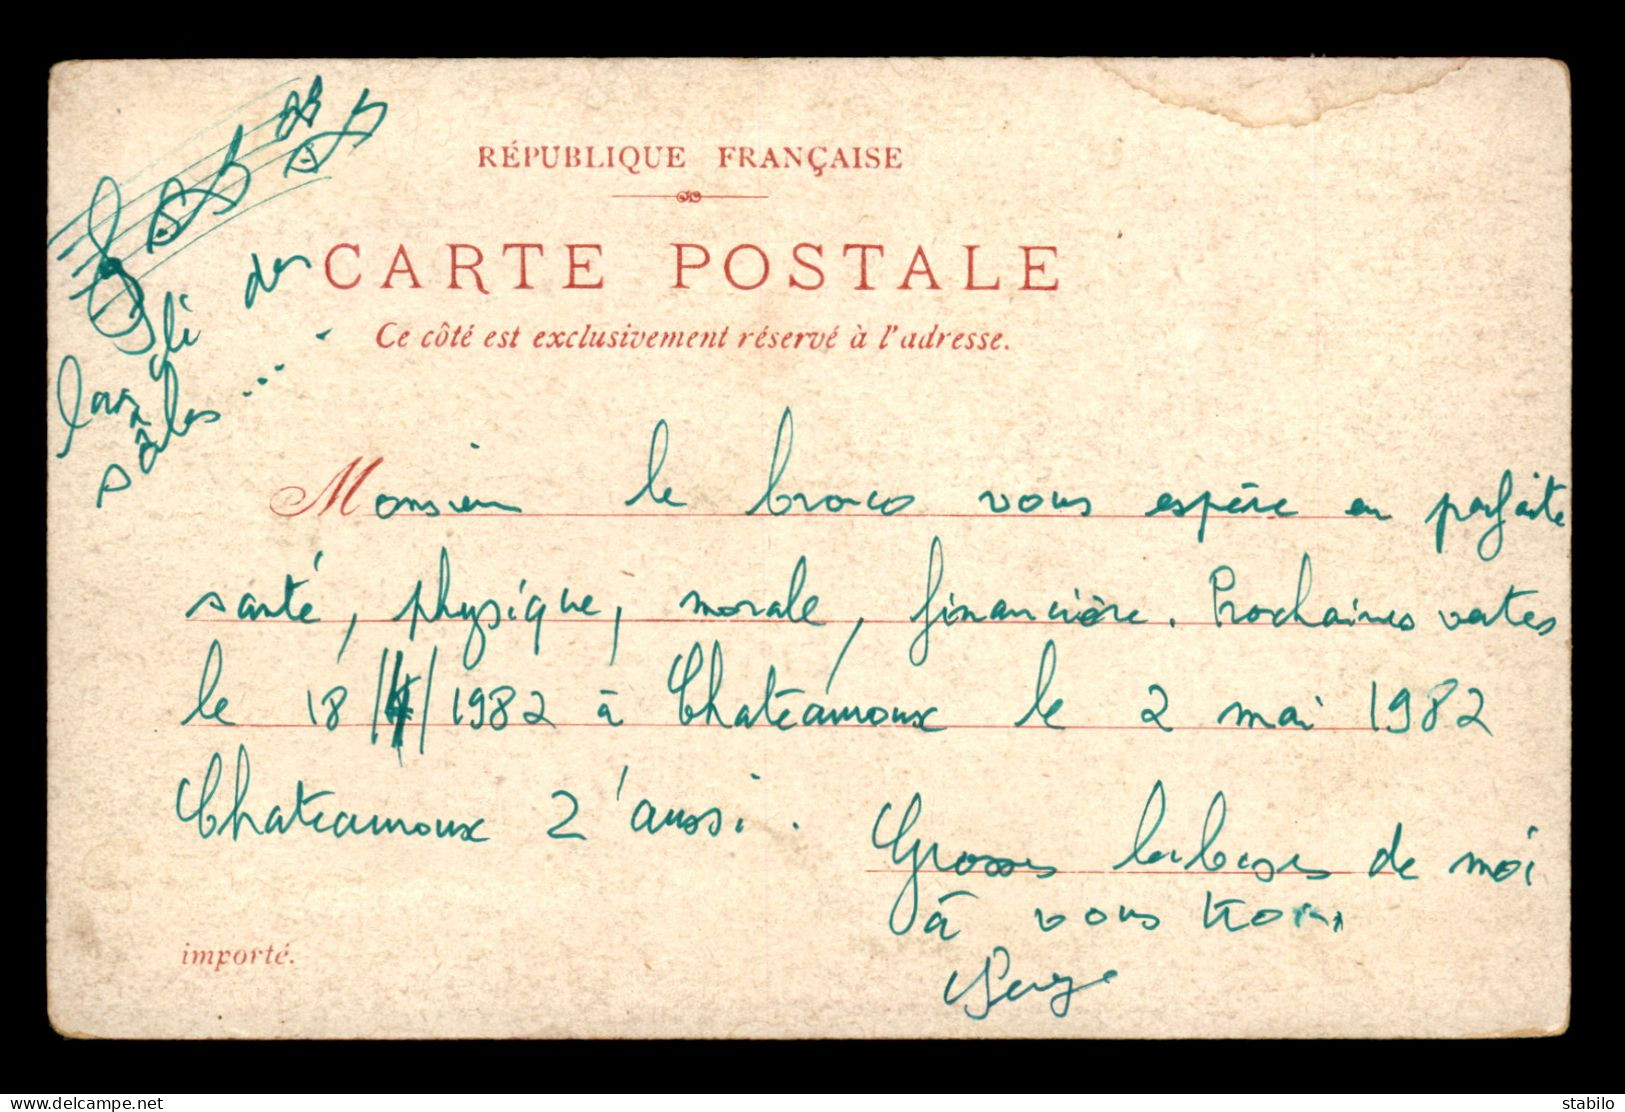 RÉPUBLIQUE FRANÇAISE
CARTE POSTALE
Ce côté est exclusivement réservé à l'adresse.
des
sâles....
Monsieur le broco vous espère en parfaite
santé, physique, morale, financière. Prochaines ventes
le 18/4/1982 à Chateauroux le 2 mai 1982
Chateauroux 2 aussi.
Grosses de moi
à vous trois
Serge
importé.
stabilo